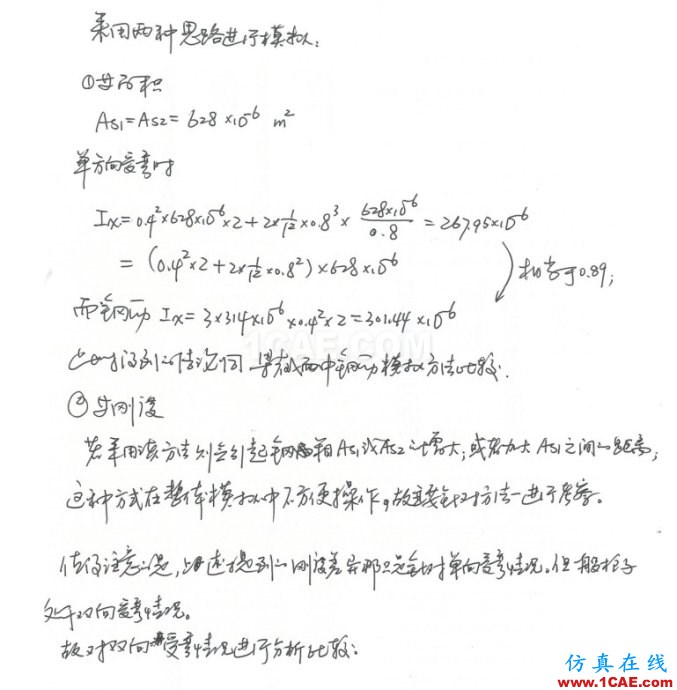 采用两种思路进行模拟:
①等面积
As1=As2= 628×10^-6 m²
单方向受弯时
Ix=0.4²×628×10^-6×2+2×1/12×0.8³×628×10^-6/0.8=267.95×10^-6
=(0.4²×2+2×1/12×0.8²)×628×10^-6 相当于0.89;
而钢筋 Ix=3×314×10^-6×0.4²×2=301.44×10^-6
此时得到的结论同 截面中钢筋模拟方法比较.
②等刚度
若采用该方法则会引起钢箱As1或As2的增大;或者加大As1之间的距离;
这种方式在整体模拟中不方便操作,故直接针对方法一进行考察。
值得注意的是,上述提到的刚度差异那只是针对单向受弯情况。但一般柱子
处于双向受弯情况。
故对双向受弯情况进行分析比较:
1CAE.COM
仿真在线
www.1CAE.com